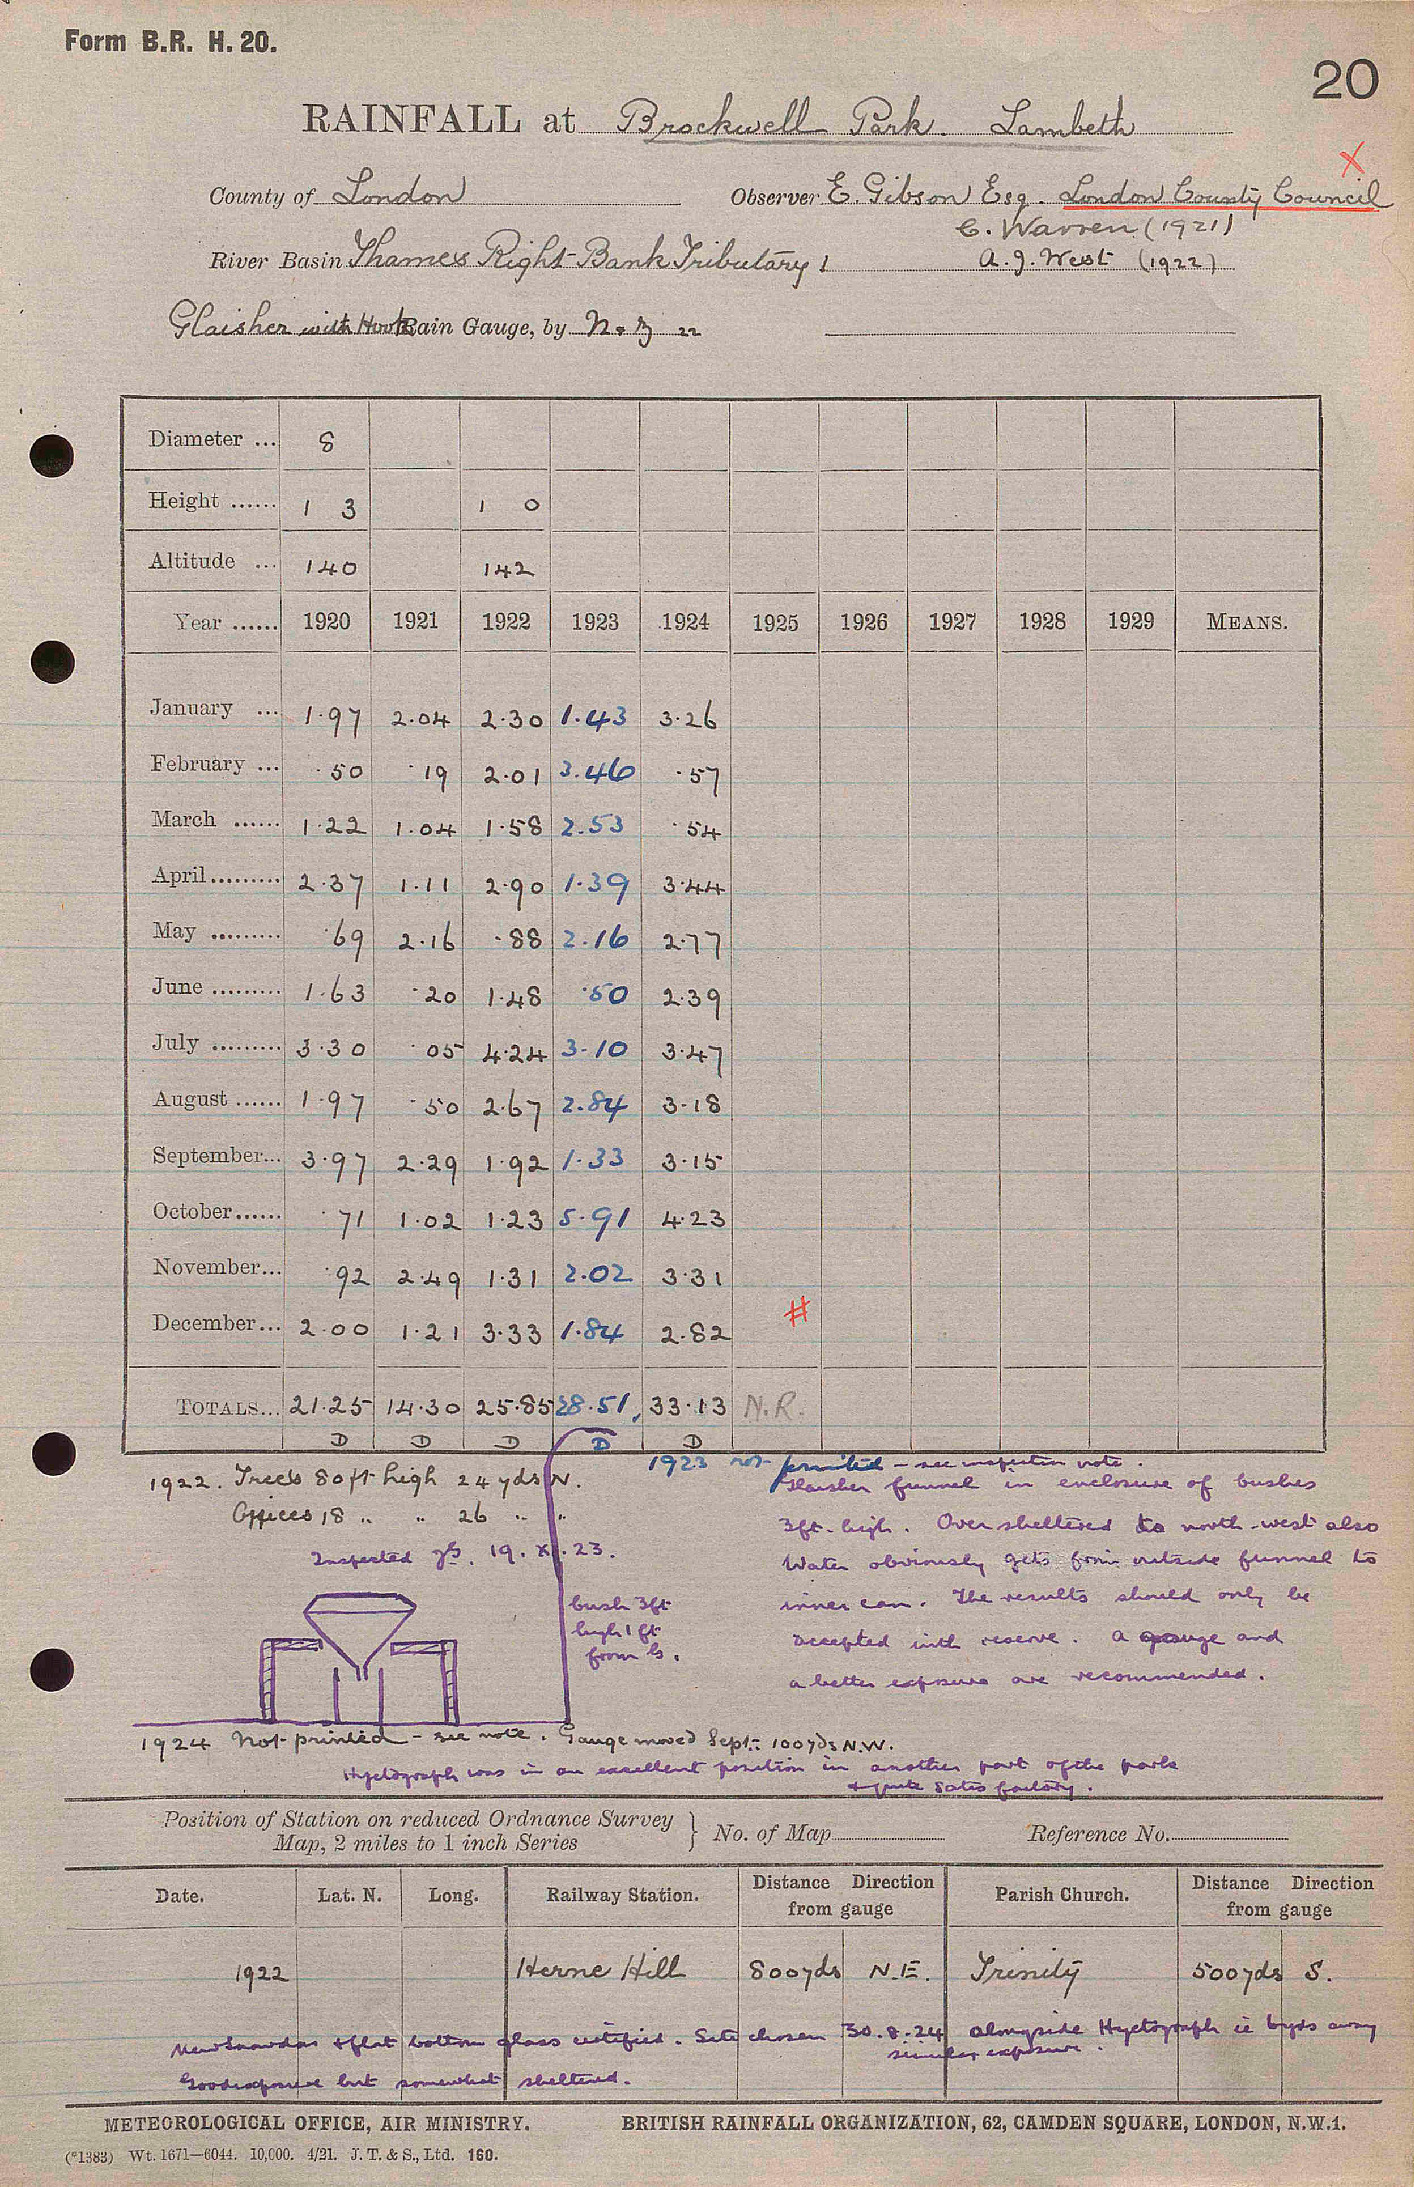 Form B.R. H. 20.
20
RAINFALL at Brockwell Park. Lambeth
X
County of London Observer E. Gibson Esq. London County Council
C. Warren (1921)
River Basin Thames Right Bank Tributary 1 A. J. West (1922)
Glaisher with Hook Rain Gauge, by N & Z 22
Diameter ... 8
Height ...... 1 3 1 0
Altitude ... 140 142
Year ...... 1920 1921 1922 1923 1924 1925 1926 1927 1928 1929 MEANS.
January ... 1.97 2.04 2.30 1.43 3.26
February ... .50 .19 2.01 3.46 .57
March ...... 1.22 1.04 1.58 2.53 .54
April ......... 2.37 1.11 2.90 1.39 3.44
May ......... .69 2.16 .88 2.16 2.77
June ......... 1.63 .20 1.48 .50 2.39
July ......... 3.30 .05 4.24 3.10 3.47
August ...... 1.97 .50 2.67 2.84 3.18
September... 3.97 2.29 1.92 1.33 3.15
October...... .71 1.02 1.23 5.91 4.23
November... .92 2.49 1.31 2.02 3.31
December... 2.00 1.21 3.33 1.84 2.82 #
TOTALS... 21.25 14.30 25.85 28.51 33.13 N.R.
D D D D D
1923 not printed - see inspection note.
1922. Trees 80 ft high 24 yds N.
Offices 18 " " 26 " "
Inspected 19. XI. 23.
Glaisher funnel in enclosure of bushes
3ft. high. Over sheltered to north-west also
Water obviously gets from outside funnel to
inner can. The results should only be
accepted with reserve. A gauge and
a better exposure are recommended.
bush 3ft
high 1 ft
from G.
1924 Not printed - see note. Gauge moved Sept: 100 yds N.W.
Hyetograph was in an excellent position in another part of the park
& quite satisfactory.
Position of Station on reduced Ordnance Survey
Map, 2 miles to 1 inch Series } No. of Map Reference No.
Date. Lat. N. Long. Railway Station. Distance Direction from gauge Parish Church. Distance Direction from gauge
1922 Herne Hill 800 yds N.E. Trinity 500 yds S.
New Snowdon & flat bottom glass certified. Site chosen 30.8.24 alongside Hyetograph ie 6 yds away
similar exposure.
Good exposure but somewhat sheltered.
METEOROLOGICAL OFFICE, AIR MINISTRY. BRITISH RAINFALL ORGANIZATION, 62, CAMDEN SQUARE, LONDON, N.W.1.
(*1383) Wt. 1671—6044. 10,000. 4/21. J. T. & S., Ltd. 160.